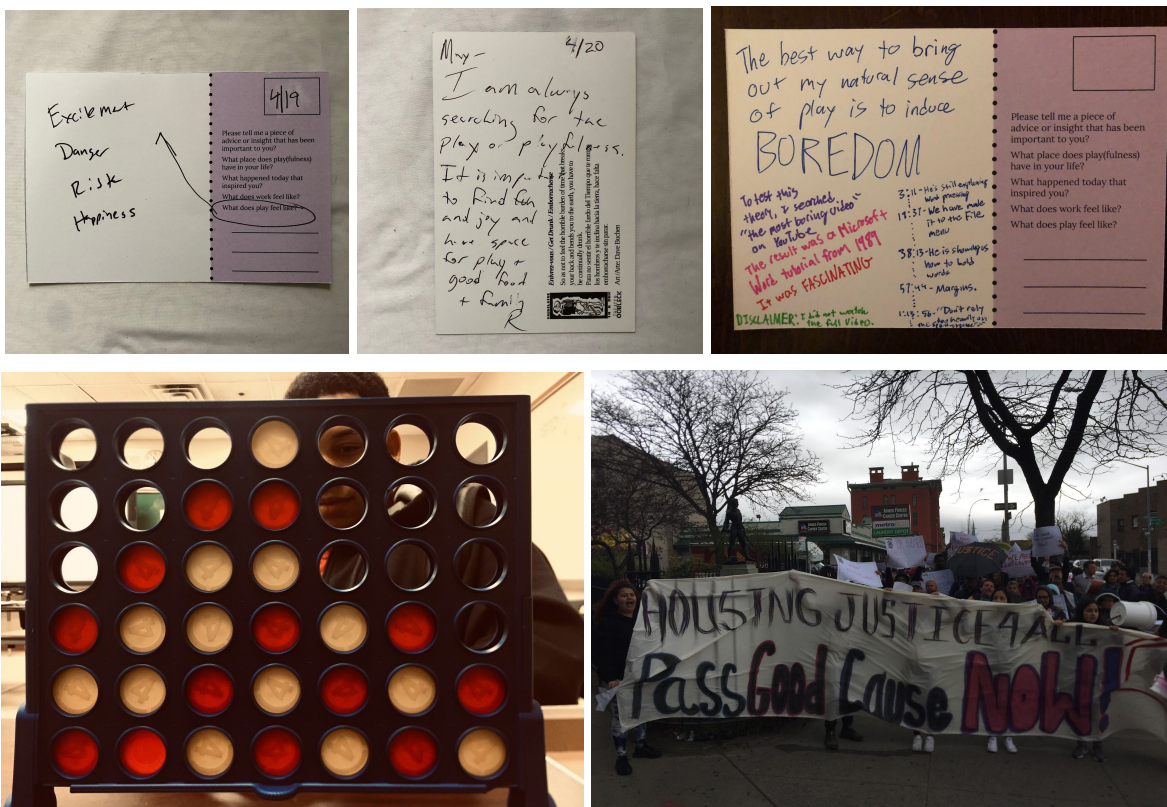 Excitement
Danger
Risk
Happiness
4/19
Please tell me a piece of
advice or insight that has been
important to you?
What place does play(fulness)
have in your life?
What happened today that
inspired you?
What does work feel like?
What does play feel like?
4/20
May-
I am always
searching for the
play or playfulness.
It is
to find
and joy and
have space
for play +
good food
+ family
R
Enivrez-vous / Get Drunk / Emborracharse
So as not to feel the horrible burden of time that breaks
your back and bends you to the earth, you have to
be continually drunk.
Para no sentir el horrible fardo del Tiempo que te rompe
los hombros y te inclina hacia la tierra, hace falta
emborracharse sin parar.
Art/Arte: Dave Buchen
The best way to bring
out my natural sense
of play is to induce
BOREDOM
To test this
theory, I searched
"the most boring video"
on YouTube.
The result was a Microsoft
Word tutorial from 1989
It was FASCINATING
DISCLAIMER: I did not watch
the full video.
3:11-He's still explaining
word processing
19:37-We have made
it to the File
menu
38:13-He is showing us
how to bold
words
57:44-Margins.
"Don't rely
Please tell me a piece of
advice or insight that has been
important to you?
What place does play(fulness)
have in your life?
What happened today that
inspired you?
What does work feel like?
What does play feel like?
ARMED FORCES
CAREER CENTER
metro
JUSTICE
HOUSING JUSTICE4ALL
Pass Good Cause NOW!